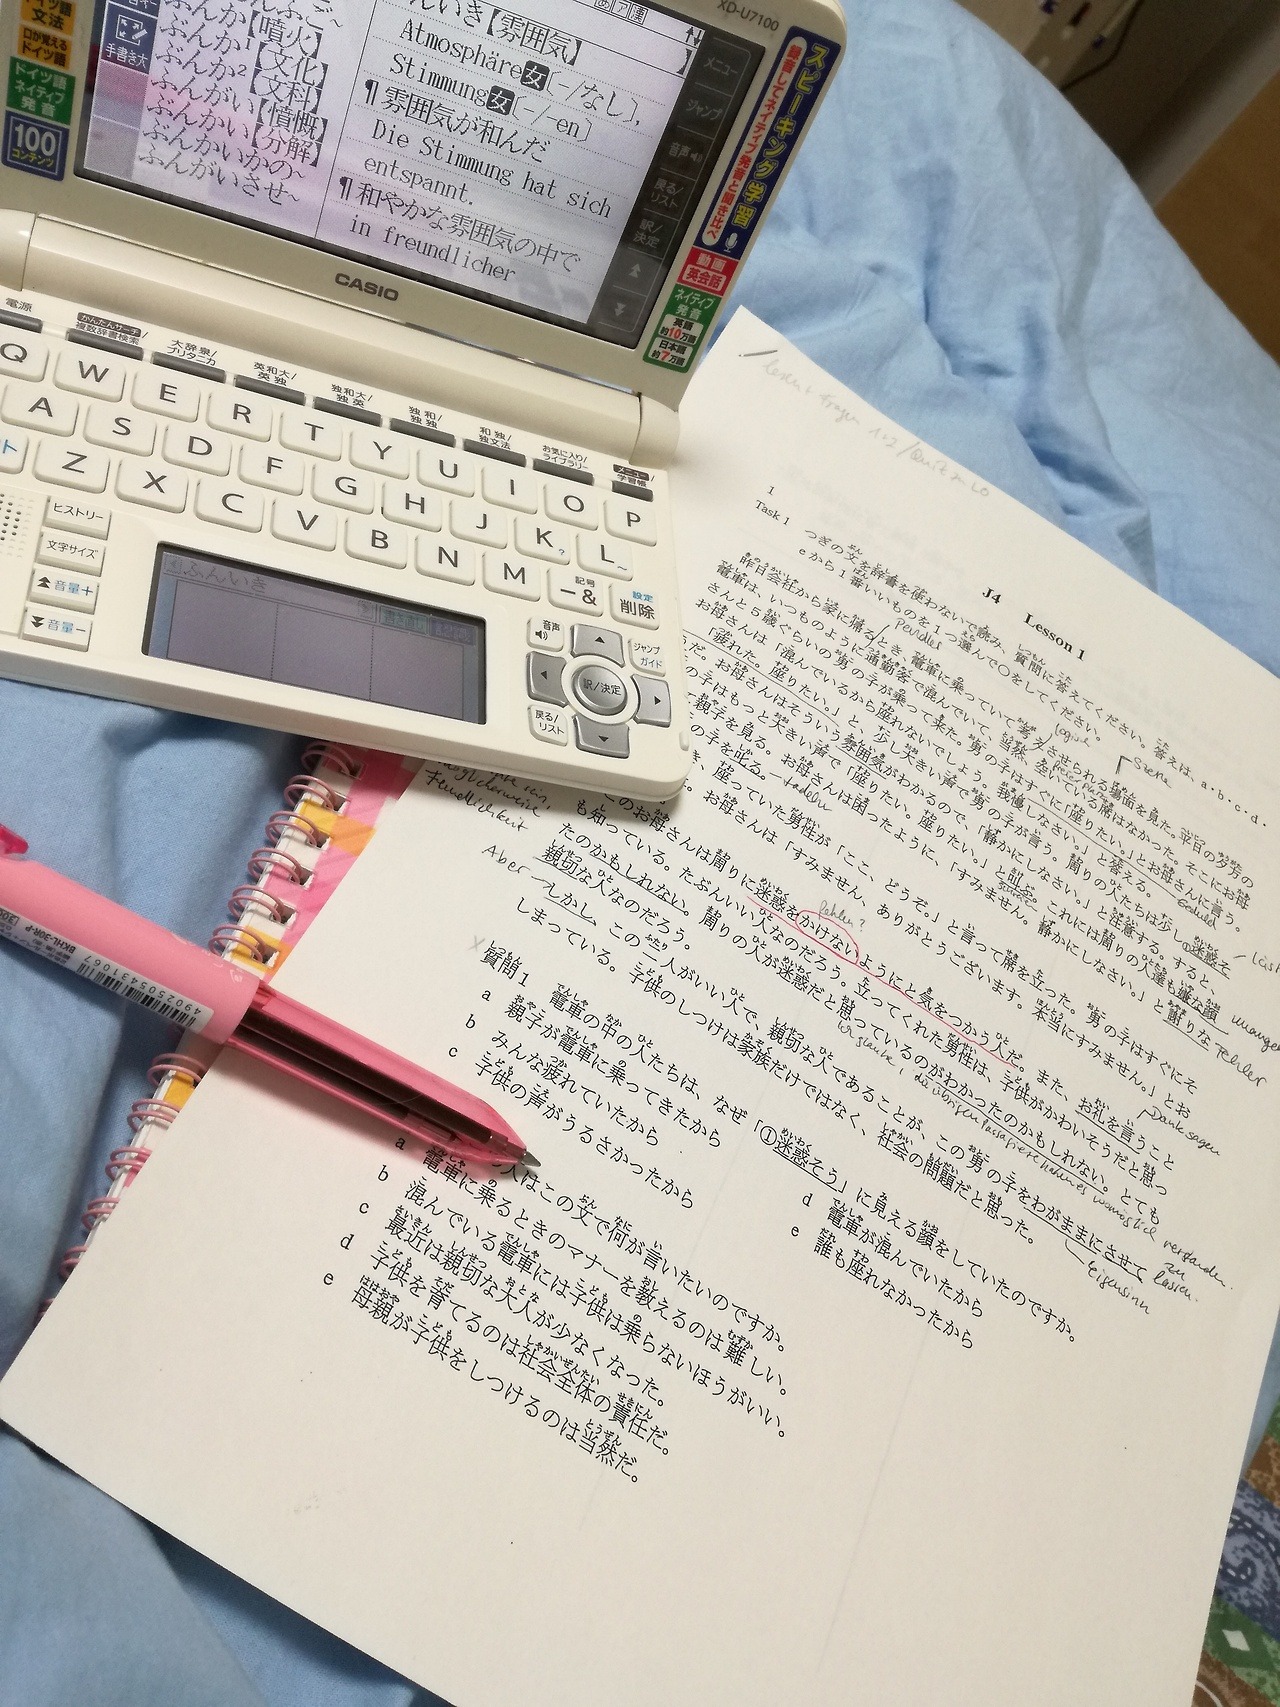 XD-U7100
ドイツ語
文法
口が覚える
ドイツ語
ドイツ語
ネイティブ
発音
100
コンテンツ
手書き
【噴火】
ぶんか¹【文化】
ぶんか²【文科】
ふんがい【憤慨】
ぶんかい【分解】
ぶんかいかの~
ふんがいさせ~
んいき【雰囲気】
Atmosphäre女(-/なし),
Stimmung女(-/-en)
¶雰囲気が和んだ
Die Stimmung hat sich
entspannt.
¶和やかな雰囲気の中で
in freundlicher
メニュー
ジャンプ
音声
戻る/リスト
訳/決定
スピーキング学習
録音してネイティブ発音と聞き比べ
動画
英会話
ネイティブ
発音
英語
約10万語
日本語
約7万語
CASIO
電源
かんたんサーチ/
複数辞書検索
大辞泉/
ブリタニカ
英和大/
英独
独和大/
独英
独和/
独独
和独/
独文法
お気に入り/
ライブラリー
メニュー/
学習帳
Q W E R T Y U I O P
A S D F G H J K L
Z X C V B N M
記号
-&
設定
削除
ヒストリー
文字サイズ
音量+
音量-
ふんいき
音声
ジャンプ
ガイド
訳/決定
戻る/
リスト
J4 Lesson 1
1
Task 1 つぎの文を辞書を使わないで読み、質問に答えてください。答えは、a・b・c・d・
eから1番いいものを1つ選んで○をしてください。
昨日会社から家に帰るとき、電車に乗っていて考えさせられる場面を見た。平日の夕方の
電車は、いつものように通勤客で混んでいて、当然、空いている席はなかった。そこにお母
さんと5歳ぐらいの男の子が乗って来た。男の子はすぐに「座りたい。」とお母さんに言う。
お母さんは「混んでいるから座れないでしょう。我慢しなさい。」と答える。
「疲れた。座りたい。」と、少し大きい声で男の子が言う。周りの人たちは少し①迷惑そ
うだ。お母さんはそういう雰囲気がわかるので、「静かにしなさい。」と注意する。すると、
の子はもっと大きい声で「座りたい。座りたい。」と
親子を見る。お母さんは困ったように、「すみません。静かにしなさい。」と謝りな
の子を叱る。
き、座っていた男性が「ここ、どうぞ。」と言って席を立った。男の子はすぐにそ
お母さんは「すみません、ありがとうございます。本当にすみません。」とお
このお母さんは周りに迷惑をかけないようにと気をつかう人だ。また、お礼を言うこと
も知っている。たぶんいい人なのだろう。立ってくれた男性は、子供がかわいそうだと思っ
たのかもしれない。周りの人が迷惑だと思っているのがわかったのかもしれない。とても
親切な人なのだろう。
しかし、この二人がいい人で、親切な人であることが、この男の子をわがままにさせて
しまっている。子供のしつけは家族だけではなく、社会の問題だと思った。
Pendler
Szene
tadeln
Fehler?
Danksagen
Aber
Eigensinn
質問1 電車の中の人たちは、なぜ「①迷惑そう」に見える顔をしていたのですか。
a 親子が電車に乗ってきたから
b みんな疲れていたから
c 子供の声がうるさかったから
d 電車が混んでいたから
e 誰も座れなかったから
人はこの文で何が言いたいのですか。
a 電車に乗るときのマナーを教えるのは難しい。
b 混んでいる電車には子供は乗らないほうがいい。
c 最近は親切な大人が少なくなった。
d 子供を育てるのは社会全体の責任だ。
e 母親が子供をしつけるのは当然だ。
BKHL-30R-P
4902505431067